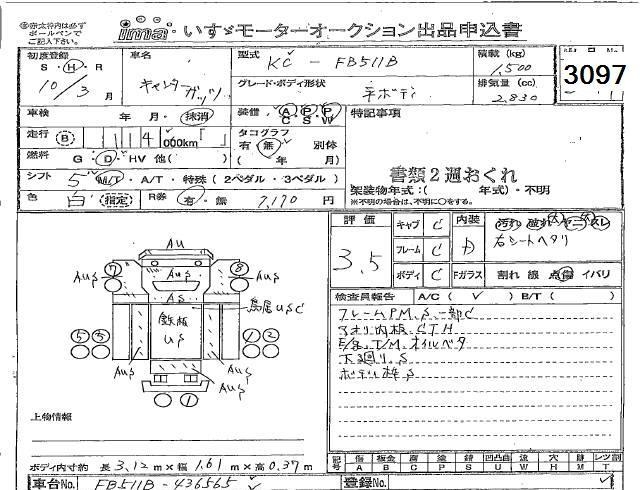 ※赤太枠内は必ず
ボールペンで
ご記入下さい。
ima いすゞモーターオークション出品申込書
初度登録 S・H・R 10/3月
車名 キャンターガッツ
型式 KC - FB511B
積載 (kg) 1,500
3097
グレード・ボディ形状 平ボディ
排気量 (cc) 2,830
車検 年・月・抹消
装備 A C P S P W
特記事項
走行 B 114,000km「 」
タコグラフ
有・無 別体
( 年 月)
燃料 G・D・HV 他( )
書類2週おくれ
シフト 5 M/T・A/T・特殊(2ペダル・3ペダル)
架装物年式:( 年式)・不明
※不明の場合は、不明に○をする。
色 白 (指定) R券 有・無 7,170 円
評価 3.5
キャブ C
フレーム C
ボディ C
内装 D
右シートヘタリ
Fガラス 割れ 線 点傷 イバリ
検査員報告 A/C ( ✓ ) B/T ( )
フレームPM.S.一部C
アオリ内板.STH
E/g.T/M.オイルベタ
下廻り.S
ボデー枠.S
AU
AUS
AUS
7
8
AUS
AS
鳥居USC
鉄板
US
5 5
1 2
AUS
AUS
AUS
1
上物情報
ボディ内寸約 長 3.12 m×幅 1.61 m×高 0.37 m
記号 傷 板金 腐 塗 錆 凹凸凸曲 追 穴 割 レツ割
A B C P S U W H M T
車台No. FB511B-436565
登録No.